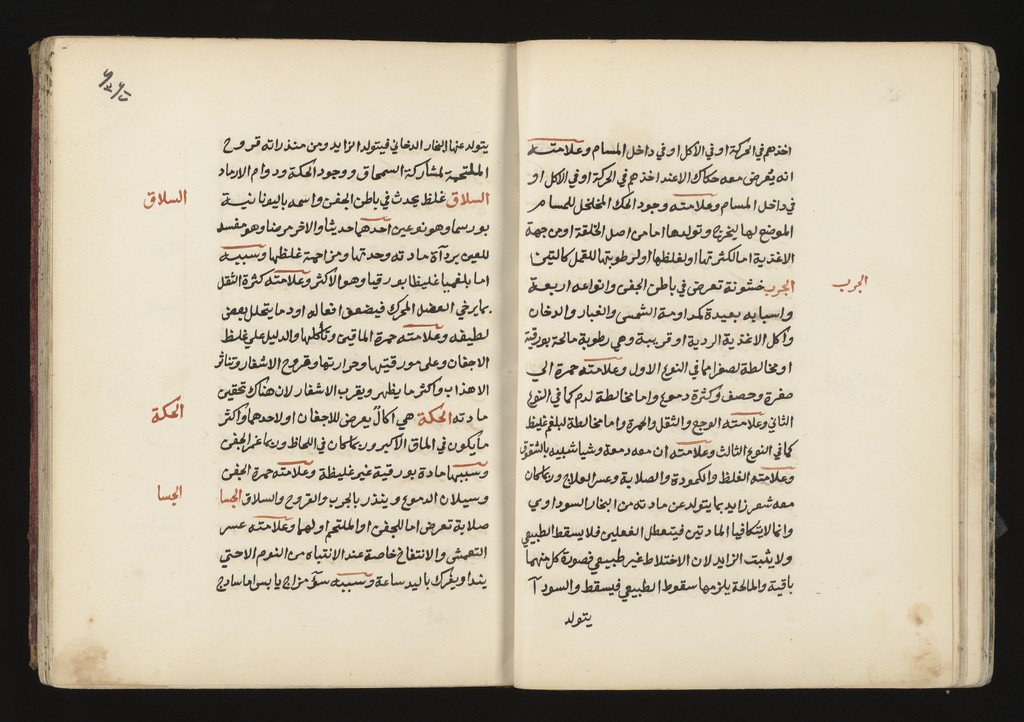 اخذهم في الحركة او في الاكل او في داخل المسام وعلامته
انه يعرض معه حكاك الا عند اخذهم في الحركة او في الاكل او
في داخل المسام وعلامته وجود الحك المخلخل للمسام
الموضع لها ليخرج وتولدها اما من اصل الخلقة او من جهة
الاغذية اما لكثرتها او لغلظها او لرطوبتها للقمل كالتين
الجرب خشونة تعرض في باطن الجفن وانواعه اربعة
الجرب
واسبابه بعيدة كمداومة الشمس والغبار والدخان
واكل الاغذية الردية او قريبة وهي رطوبة مالحة بورقية
او مخالطة لصفرا كما في النوع الاول وعلامته حمرة الى
صفرة وحصف وكثرة دموع واما مخالطة لدم كما في النوع
الثاني وعلامته الوجع والثقل والحمرة واما مخالطة لبلغم غليظ
كما في النوع الثالث وعلامته ان معه دمعة وشيا شبيه بالشقوق
وعلامته الغلظ والكمودة والصلابة وعسر العلاج وربما كان
معه شعر زايد بما يتولد عن مادته من البخار السوداوي
وانما لا يتكافيا المادتين فيتعطل الفعلين فلا يسقط الطبيعي
ولا يثبت الزايد لان الاختلاط غير طبيعي فصورة كل منهما
باقية والمالحة يلزمها سقوط الطبيعي فيسقط والسودآ
يتولد
يتولد عنها البخار الدخاني فيتولد الزايد ومن منذراته قروح
الملتحمة لمشاركة السمحاق ووجود الحكة ودوام الارماد
السلاق غلظ يحدث في باطن الجفن واسمه باليونانية
السلاق
بورسما وهو نوعين احدهما حديثا والاخر مرضا وهو مفسد
للعين بردآة مادته وحدتها ومزاحمة غلظها وسببه
اما بلغميا غليظا بورقيا وهو الاكثر وعلامته كثرة الثقل
بما يرخي العضل المحرك فيضعف افعاله او دما يتحلل بعض
لطيفه وعلامته حمرة الماقين وتأكلها والدليل على غلظ
الاجفان وعلى مورقيتها وحرارتها وقروح الاشفار وتناثر
الاهداب واكثر ما يظهر ويقرب الاشفار لان هناك تحقين
مادته الحكة هي اكالٌ يعرض للاجفان او لاحدهما واكثر
الحكة
ما يكون في الماق الاكبر وربما كان في اللحاظ وربما عم الجفن
وسببها مادة بورقية غير غليظة وعلامته حمرة الجفن
وسيلان الدموع وينذر بالجرب والقروح والسلاق الجسا
الجسا
صلابة تعرض اما للجفن او الملتحم او لهما وعلامته عسر
التغميض والانتفاخ خاصة عند الانتباه من النوم الا حتى
يندا ويفرك باليد ساعة وسببه سؤ مزاج يابس اما ساذج